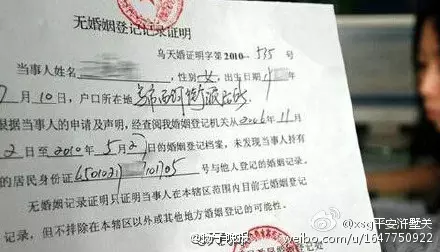 无婚姻登记记录证明
乌天婚证明字第2010-535号
当事人姓名 ，性别女，出生日期
月10日，户口所在地
根据当事人的申请及声明，经查阅我婚姻登记机关从2006年11月
2日至2010年5月2日的婚姻登记档案，未发现当事人持有
的居民身份证6501021 101705号与他人登记的婚姻记录。
无婚姻登记记录只证明当事人在本辖区范围内目前无婚姻登
记录，但不排除在本辖区以外或其他地方婚姻登记的可能性。
@扬子晚报
@xsg平安浒墅关
weibo.com/u/1647750922